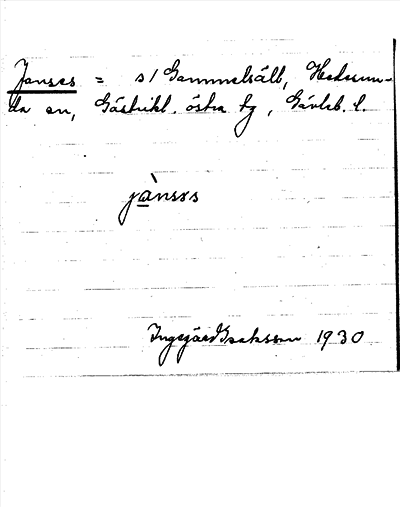 Janses = s/ Gammelsäll, Hedesun-
da sn, Gästrikl. östra tg, Gävleb. l.
jànsəs
Ingegärd Isaksson 1930